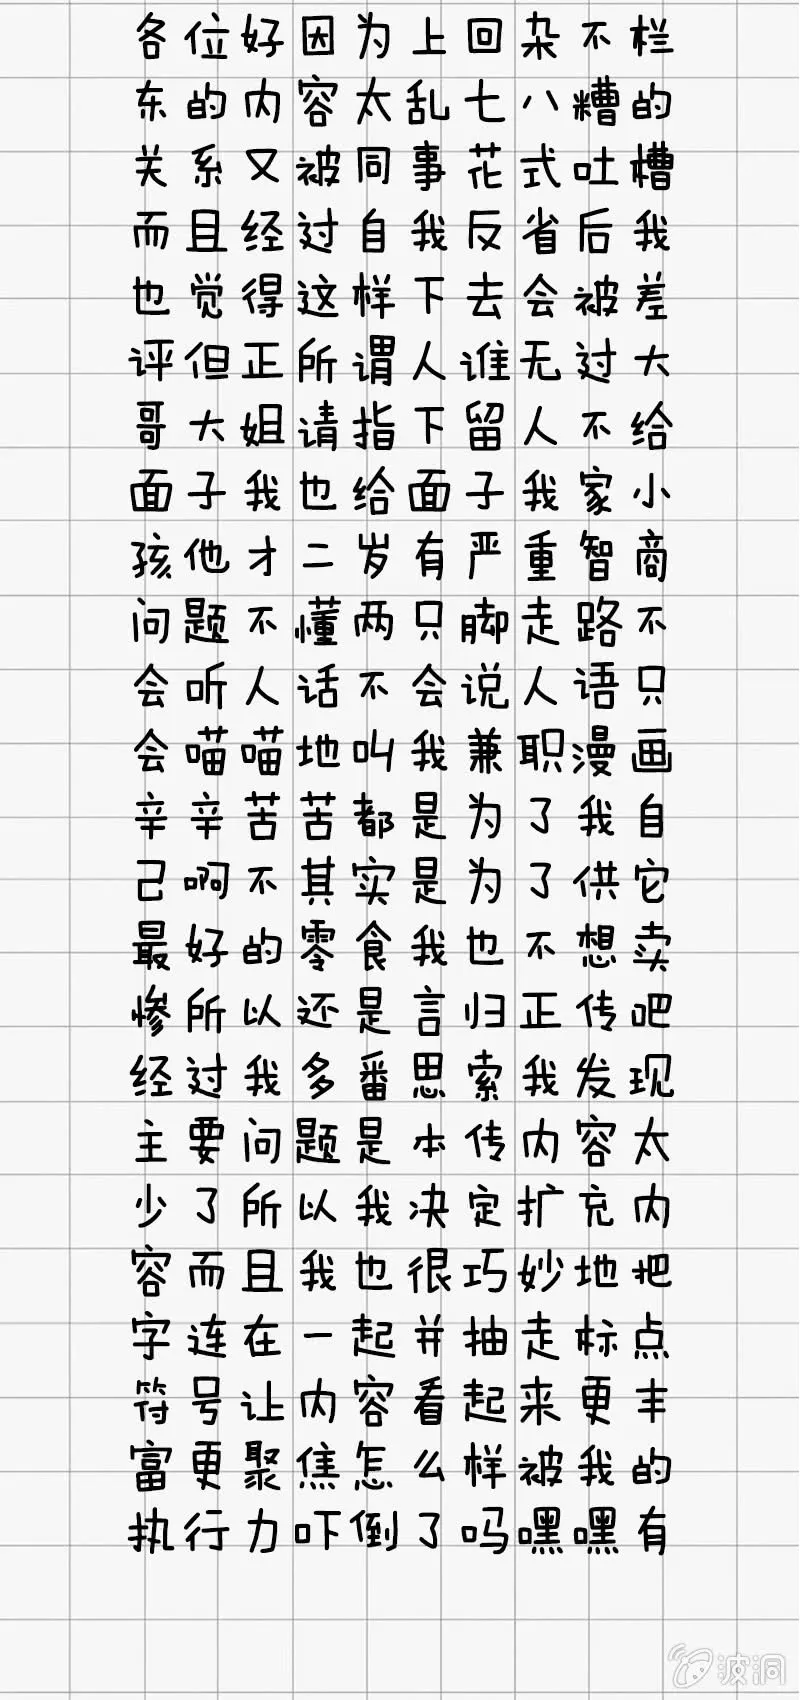 各位好因为上回杂不栏
东的内容太乱七八糟的
关系又被同事花式吐槽
而且经过自我反省后我
也觉得这样下去会被差
评但正所谓人谁无过大
哥大姐请指下留人不给
面子我也给面子我家小
孩他才二岁有严重智商
问题不懂两只脚走路不
会听人话不会说人语只
会喵喵地叫我兼职漫画
辛辛苦苦都是为了我自
己啊不其实是为了供它
最好的零食我也不想卖
惨所以还是言归正传吧
经过我多番思索我发现
主要问题是本传内容太
少了所以我决定扩充内
容而且我也很巧妙地把
字连在一起并抽走标点
符号让内容看起来更丰
富更聚焦怎么样被我的
执行力吓倒了吗嘿嘿有
波洞